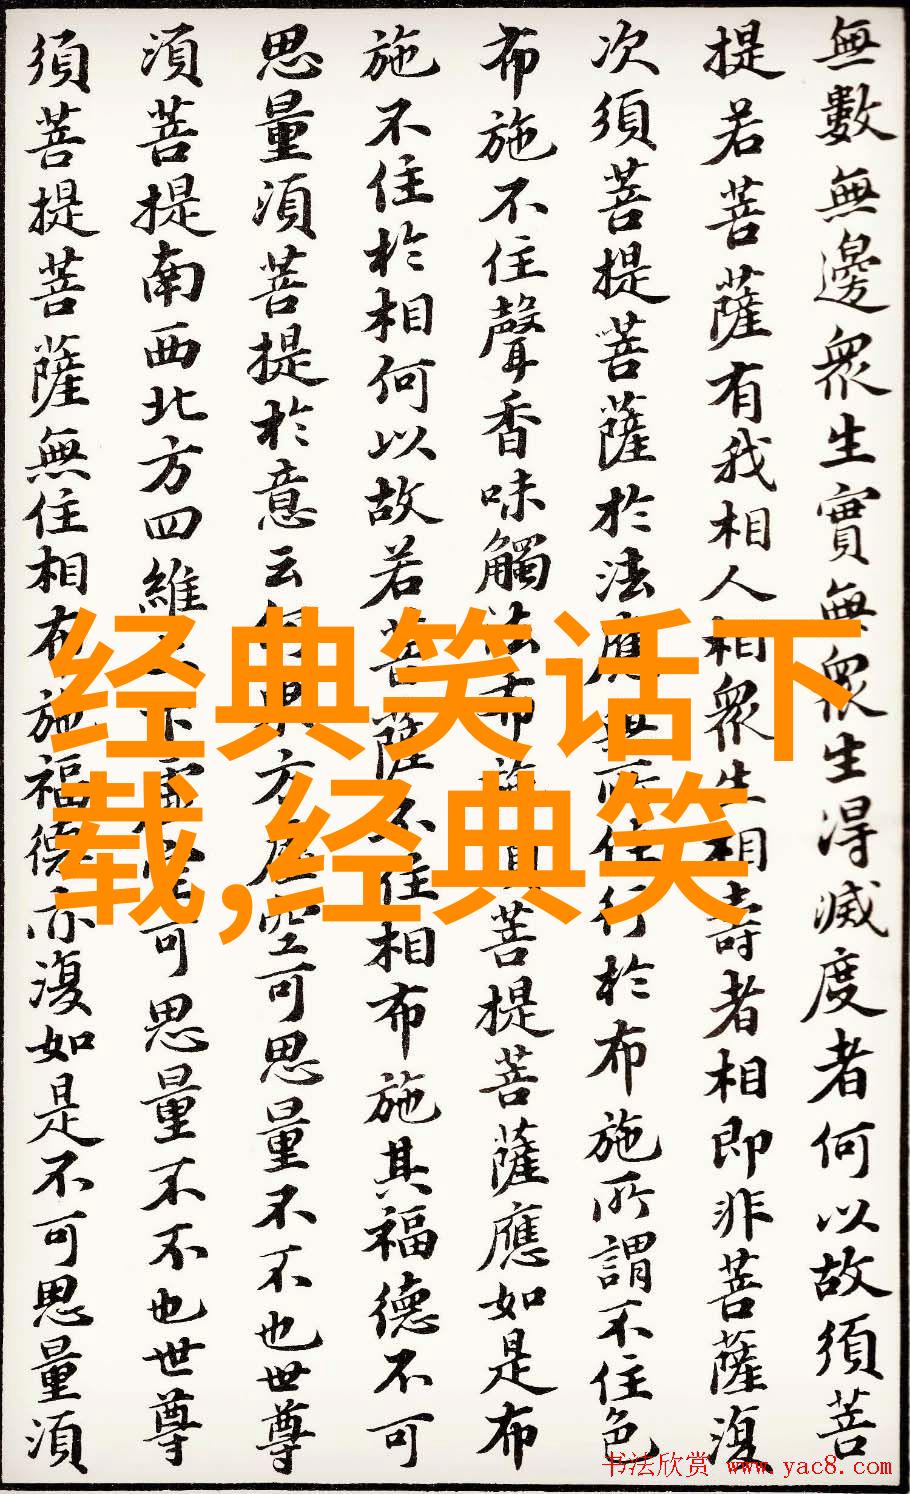 無數無邊眾生實無眾生得滅度者何以故須菩
提若菩薩有我相人相眾生相壽者相即非菩薩復
次須菩提菩薩於法應無所住行於布施所謂不住色
布施不住聲香味觸法布施須菩提菩薩應如是布
施不住於相何以故若菩薩不住相布施其福德不可
思量須菩提於意云何東方虛空可思量不不也世尊
須菩提南西北方四維上下虛空可思量不不也世尊
須菩提菩薩無住相布施福德亦復如是不可思量須
经典笑话下
载,经典笑
书法欣赏 www.yac8.com